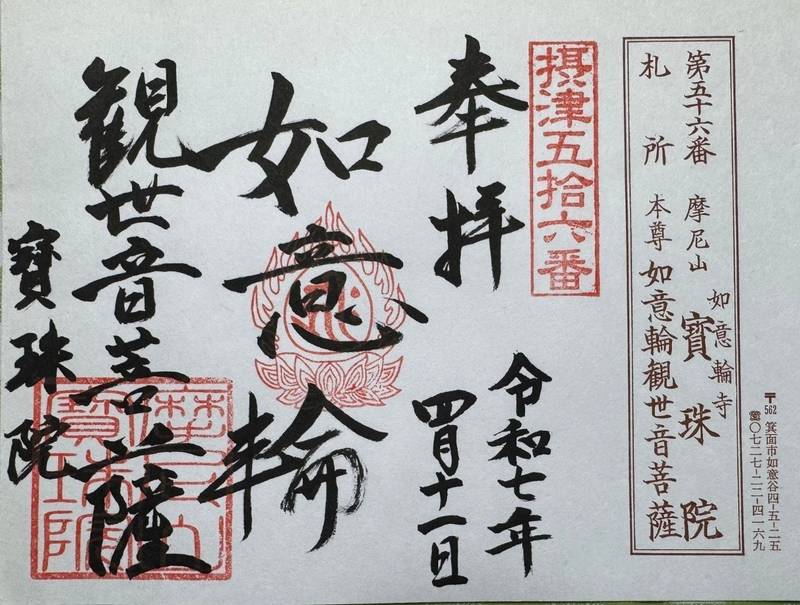 〒562 箕面市如意谷四-五-二五
☎〇七二七-二二-四一六九
第五十六番 摩尼山 如意輪寺 寳珠院
札所 本尊 如意輪観世音菩薩
摂津五拾六番
奉拝
令和七年
四月十一日
如意輪
観世音菩薩
寳珠院
摩尼山
寳珠院